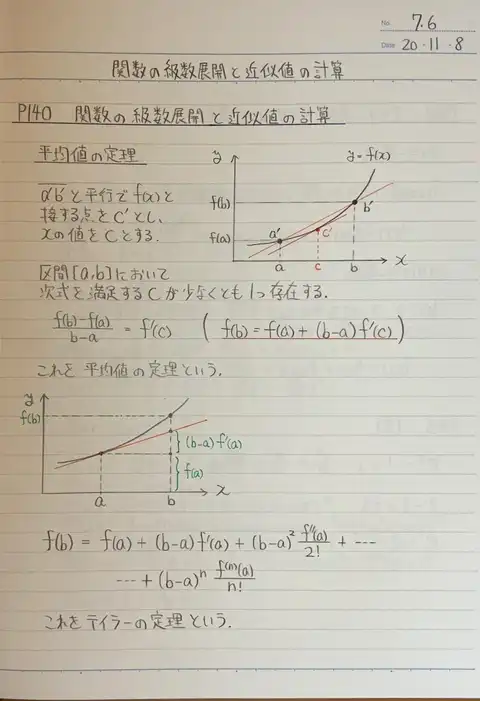 No. 7.6
Date 20・11・8
関数の級数展開と近似値の計算
P140 関数の級数展開と近似値の計算
平均値の定理
a'b'と平行でf(x)と
接する点をC'とし、
xの値をCとする.
y
y=f(x)
f(b)
f(a)
a'
c'
b'
a
c
b
x
区間[a,b]において
次式を満足するCが少なくとも1つ存在する.
(f(b)-f(a))/(b-a) = f'(c) ( f(b)=f(a)+(b-a)f'(c) )
これを平均値の定理という.
y
f(b)
(b-a)f'(a)
f(a)
a
b
x
f(b) = f(a) + (b-a)f'(a) + (b-a)² f''(a)/2! + ----
---- + (b-a)ⁿ f⁽ⁿ⁾(a)/n!
これをテイラーの定理という.